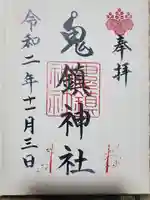 奉拝
鬼鎮神社
令和二年十一月三日